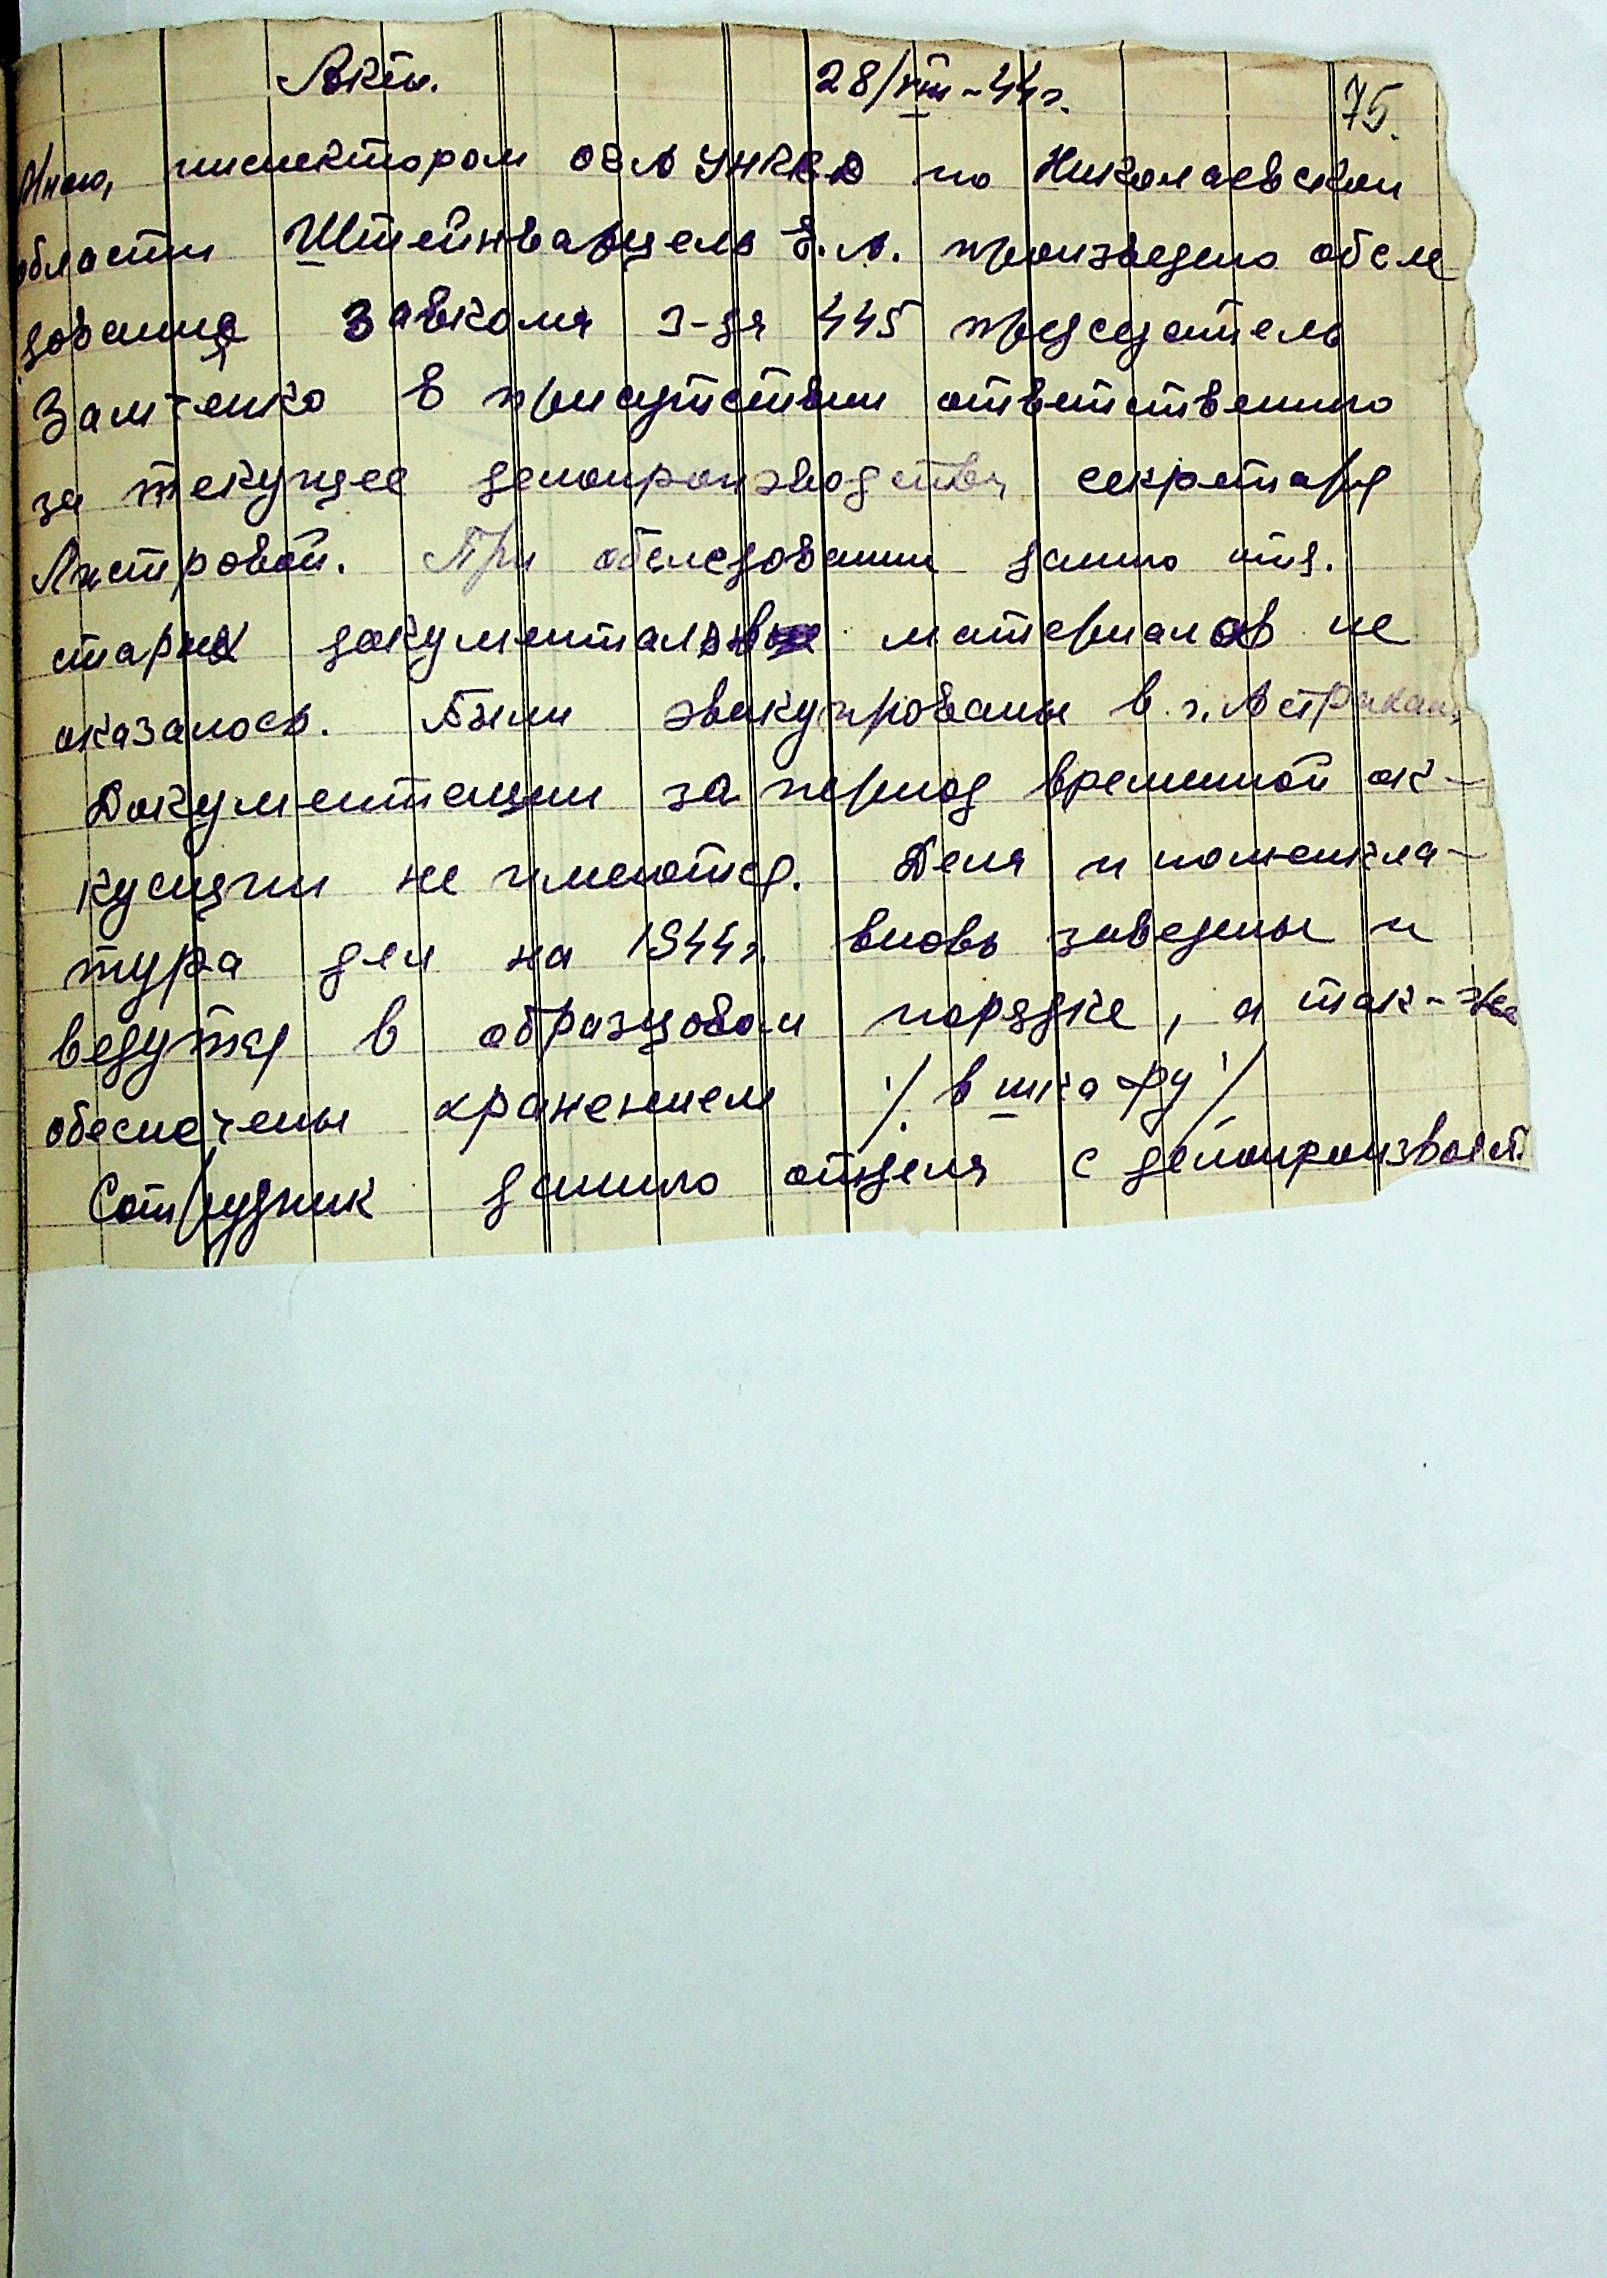 Акт. 28/VIII-44г. 75.
Мною, инспектором ОГА УНКВД по Николаевской
области Штейнварцель Е.А. произведено обсле
дование Завкома з-да 445 председатель
в присутствии ответственного
за текущее делопроизводства секретаря
Листровой. При обследовании данного отд.
старых документальных материалов не
оказалось. Были эвакуированы в г. Астрахань
Документации за период временной ок-
купации не имеются. Дела и номенкла-
тура дел на 1944г. вновь заведены и
ведутся в образцовом порядке, а так-же
обеспечены хранением /. в шкафу ./
Сотрудник данного отдела с делопроизводст.